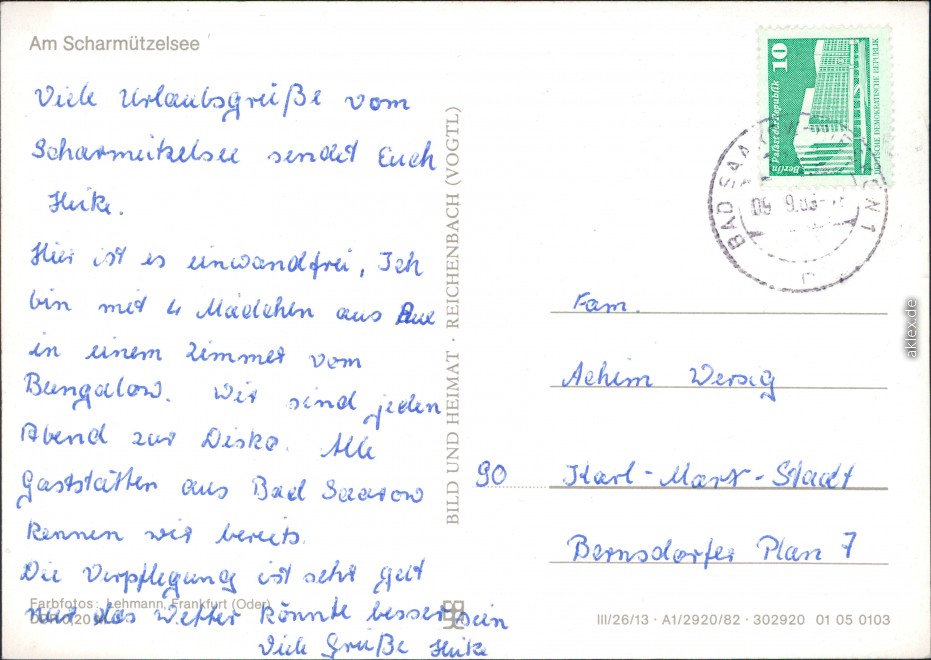 Am Scharmützelsee
Viele Urlaubsgrüße vom
Scharmützelsee sendet Euch
Heike.
Hier ist es einwandfrei, Ich
bin mit 4 Mädchen aus Aue
in einem Zimmer vom
Bungalow. Wir sind jeden
Abend zur Disko. Alle
Gaststätten aus Bad Saarow
kennen wir bereits.
Die Verpflegung ist sehr gut
nur das Wetter könnte besser sein
Viele Grüße Heike
Farbfotos: Lehmann, Frankfurt (Oder)
BILD UND HEIMAT · REICHENBACH (VOGTL)
10
Berlin Palast der Republik
DEUTSCHE DEMOKRATISCHE REPUBLIK
BAD SAA
Fam.
Achim Wersig
90 Karl-Marx-Stadt
Bernsdorfer Plan 7
III/26/13 · A1/2920/82 · 302920 01 05 0103
aklex.de